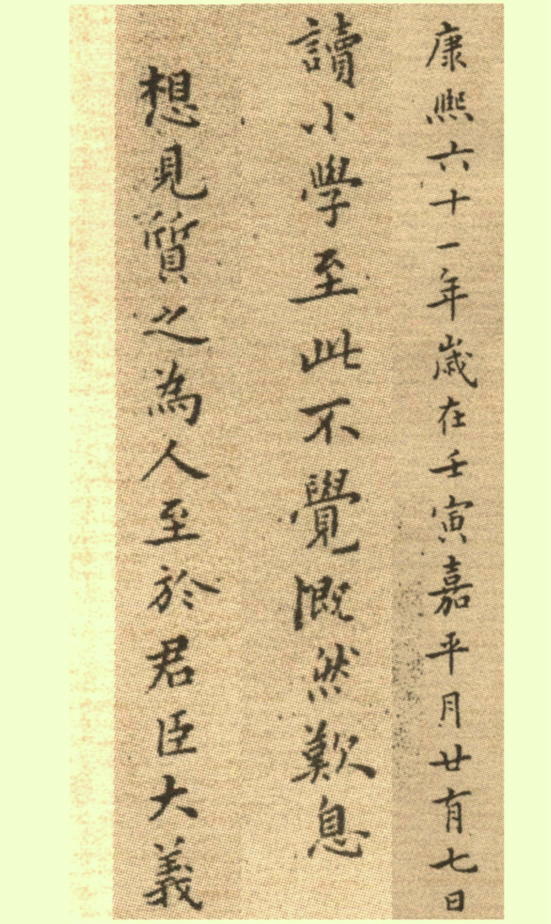 康熙六十一年歲在壬寅嘉平月廿有七日
讀小學至此不覺慨然歎息
想見質之為人至於君臣大義